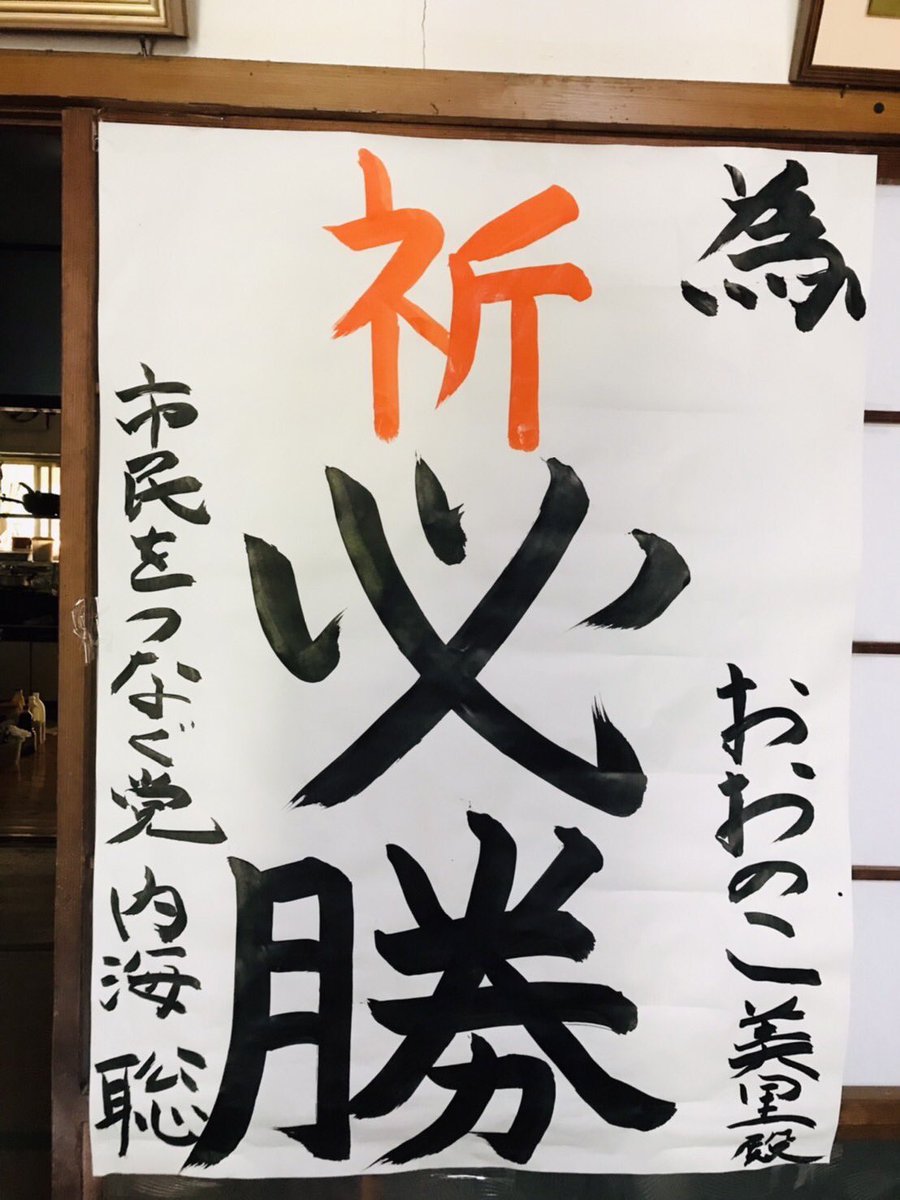 為
おおのこ美里殿
祈
必勝
市民をつなぐ党
内海 聡